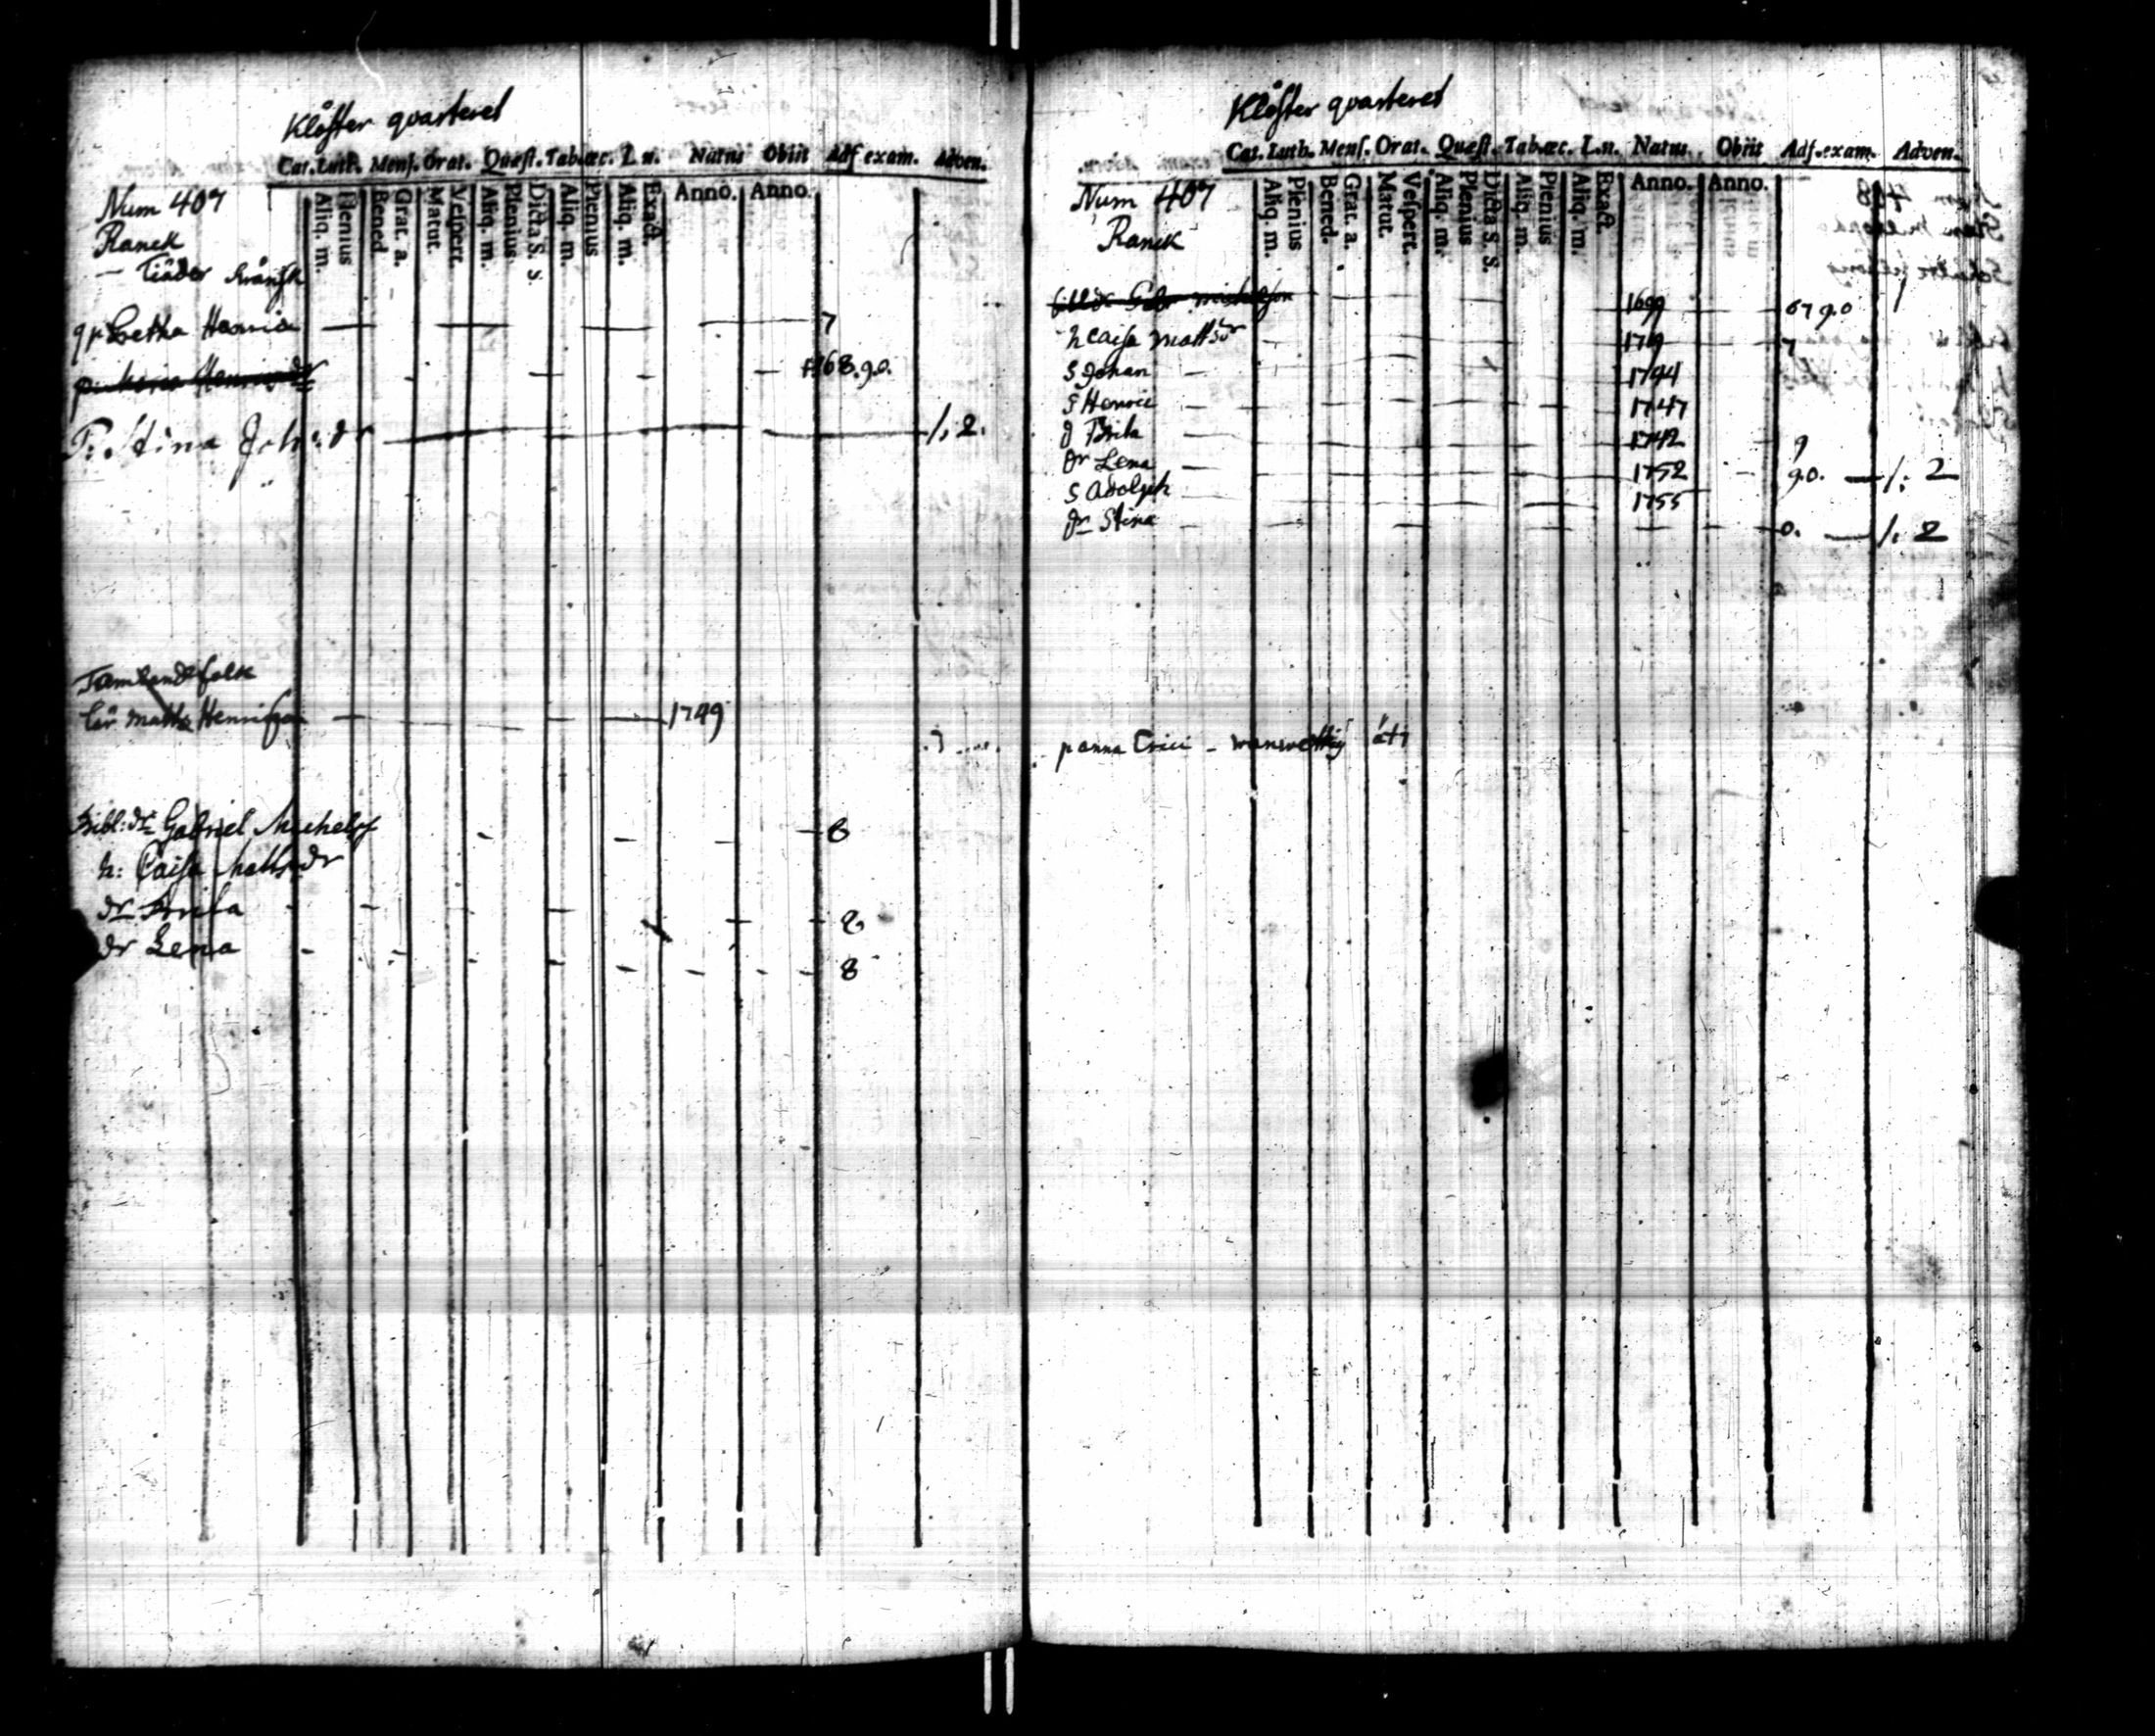 Klöster qvarteret
Cat. Luth. Menſ. Orat. Quæſt. Tab. œc. L. n. Natus Obiit Adſ exam. Adven.
Aliq. m. Plenius Bened. Grat. a. Matut. Veſpert. Aliq. m. Plenius Dicta S. S. Aliq. m. Plenius Aliq. m. Exact. Anno. Anno.
Num 407
Ranck
Enka Hennic 7
+ 68. 9.0.
P. Stina Joh: dr 1. 2.
folk
Matts Henrigson 1749
Bibl: dr Gabriel Michelsſ 8
h: Caisa Matts dr
dr Brita 8
dr Lena 8
Klöster qvarteret
Cat. Luth. Menſ. Orat. Quæſt. Tab. œc. L. n. Natus Obiit Adſ. exam. Adven.
Aliq. m. Plenius Bened. Grat. a. Matut. Veſpert. Aliq. m. Plenius Dicta S. S. Aliq. m. Plenius Aliq. m. Exact. Anno. Anno.
Num 407
Ranck
Gabr michelſon 1699 67 9.0
h Caisa Matts dr 1719 7
S Johan 1744
S Henric 1747
d Brita 1742 9
dr Lena 1752 9.0. 1: 2
S Adolph 1755
dr Stina 0. 1. 2
p anna Erici